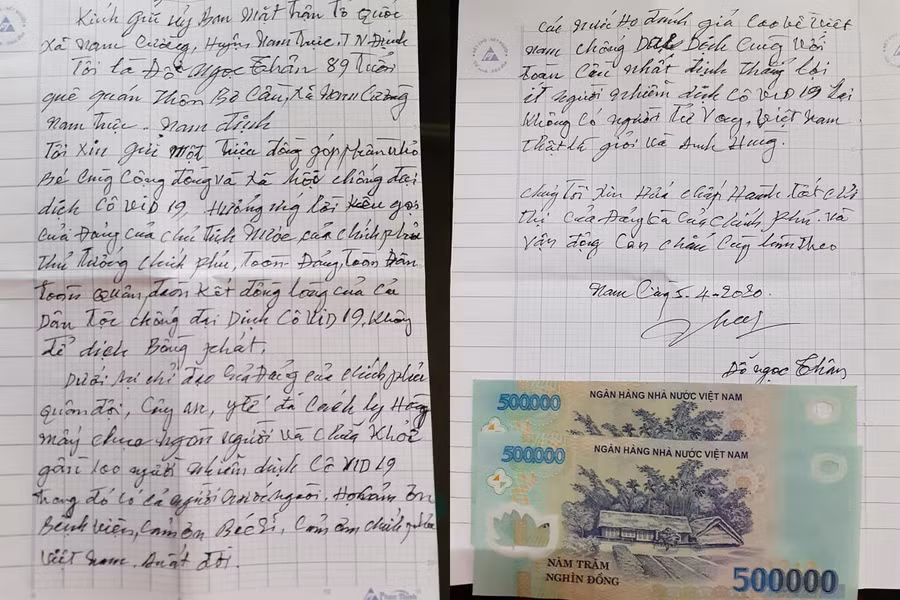 Kính gửi Uỷ Ban Mặt Trận Tổ Quốc
Xã Nam Cường, Huyện Nam Trực, T. N. Định
Tôi là Đỗ Ngọc Thân 89 tuổi
quê quán thôn Bờ Cầu, Xã Nam Cường
Nam Trực. Nam định
Tôi Xin gửi một triệu đồng góp phần nhỏ
Bé cùng cộng đồng và Xã hội chống đại
dịch CôVID 19, Hưởng ứng lời kêu gọi
của Đảng của chủ tịch Nước, của chính phủ
thủ tướng chính phủ, toàn Đảng, toàn Dân
toàn quân, đoàn kết đồng lòng của cả
Dân tộc chống đại Dịch CôViD 19, không
để dịch Bùng phát.
Dưới sự chỉ đạo của Đảng của chính phủ
quân đội, Công an, y tế đã cách ly Hàng
mấy chục ngàn người và chữa khỏi
gần 100 người nhiễm dịch CôVID 19
trong đó có cả người nước ngoài. Họ cảm ơn
Bệnh viện, Cảm ơn Bác sĩ, Cảm ơn chính phủ
Việt Nam.
các nước Họ đánh giá cao về Việt
nam chống Dịch Cùng với
toàn Cầu nhất định thắng lợi
ít người nhiễm dịch CôVID 19 lại
không có người Tử Vong, Việt Nam
thật là giỏi và Anh Hùng.
chúng Tôi Xin Hứa chấp Hành tốt chỉ
thị của Đảng và của chính phủ và
vận động con cháu cùng làm theo
Nam Cường 5.4-2020.
Đỗ Ngọc Thân
500000
NGÂN HÀNG NHÀ NƯỚC VIỆT NAM
500000
NGÂN HÀNG NHÀ NƯỚC VIỆT NAM
NĂM TRĂM
NGHÌN ĐỒNG
500000